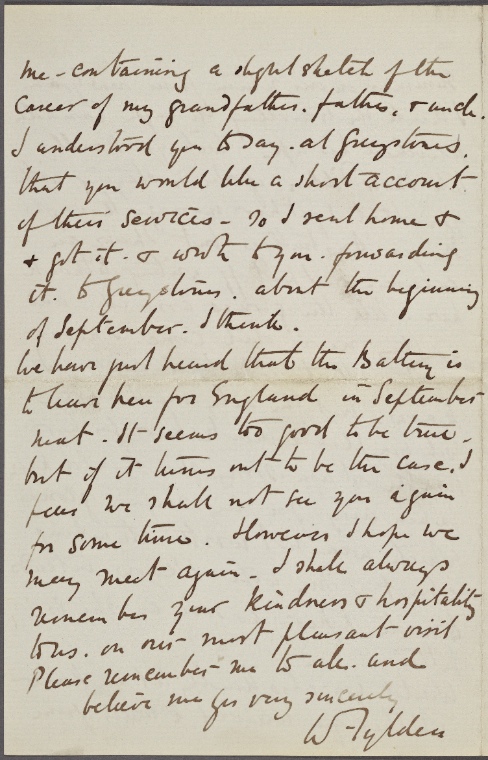 me - containing a slight sketch of the
Career of my grandfather. father, & uncle.
I understood you to say. at Greystones,
that you would like a short account
of their Services - so I sent home &
& got it. & wrote to you. forwarding
it. to Greystones. about the beginning
of September. I think.
We have just heard that the Battery is
to leave here for England in September
next. It seems too good to be true -
but if it turns out to be the case. I
fear we shall not see you again
for some time. However I hope we
may meet again - I shall always
remember your kindness & hospitality
to us. on our most pleasant visit
Please remember me to all. and
believe me yrs very sincerely
W Tylden